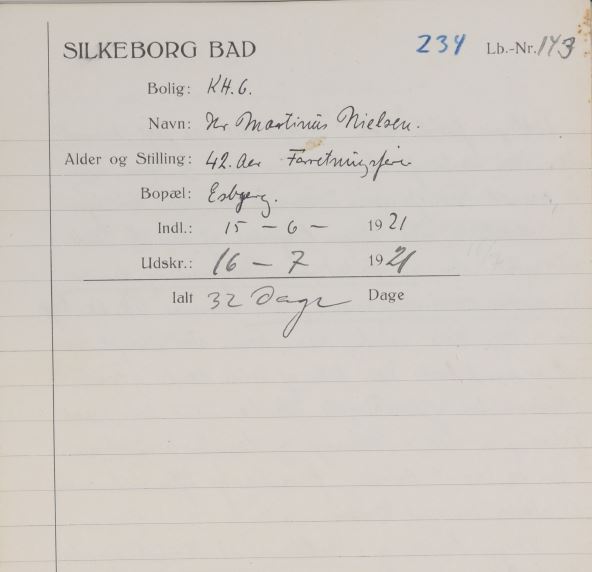 SILKEBORG BAD 234 Lb.-Nr. 143
Bolig: KH.6.
Navn: Hr Martinus Nielsen.
Alder og Stilling: 42. Aar Forretningsfører
Bopæl: Esbjerg.
Indl.: 15 - 6 - 1921
Udskr.: 16 - 7 1921
Ialt 32 Dage Dage